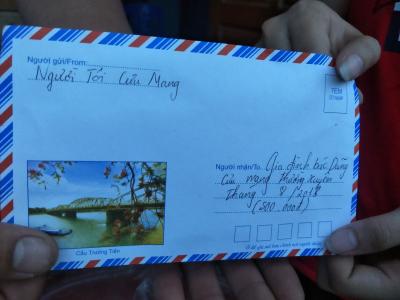 Người gửi/From:
Người Tới Cưu Mang
TEM
Người nhận/To. Gia đình bác Dũng
Cưu mang thường xuyên
Tháng 8/2018
(500.000đ)
Cầu Trường Tiền